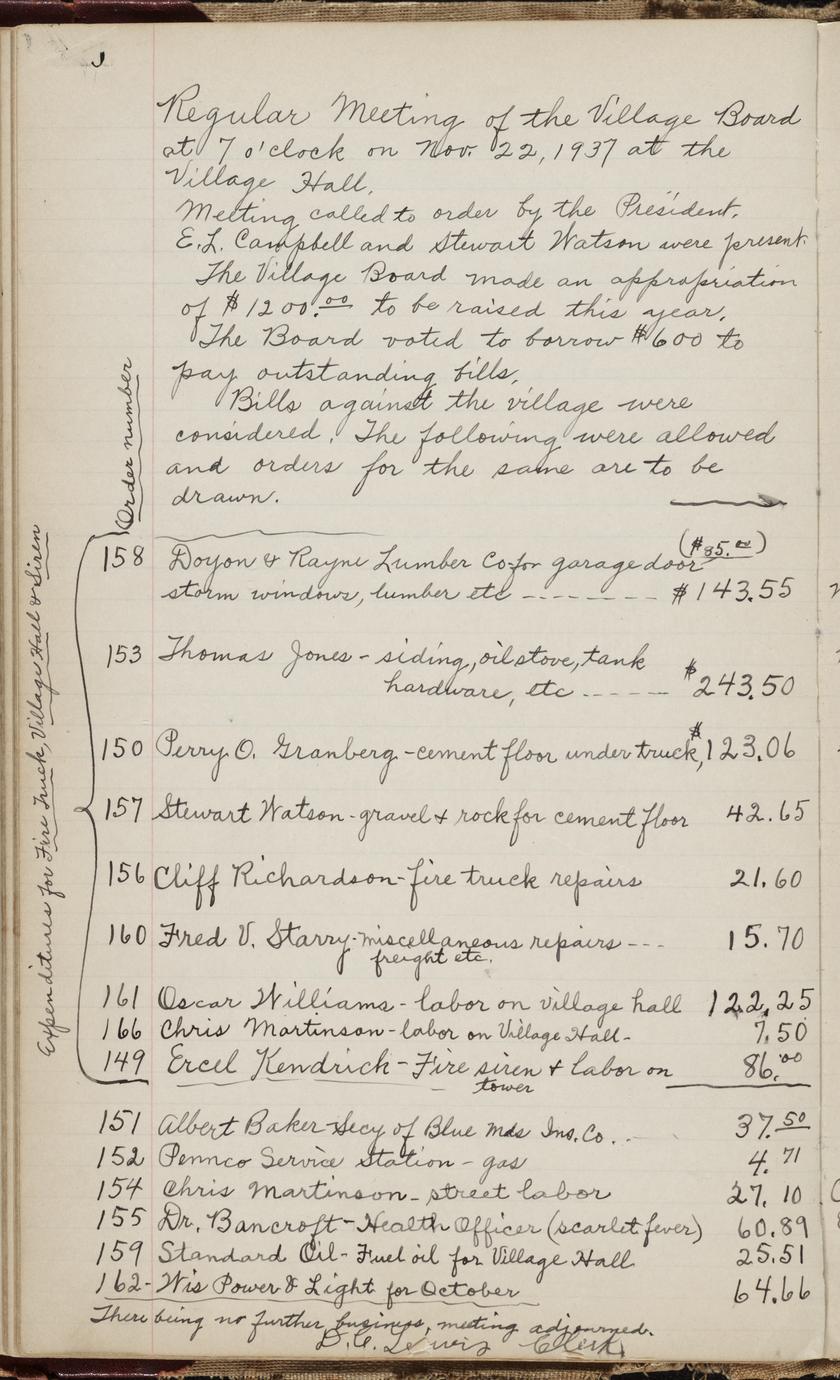 Regular Meeting of the Village Board
at 7 o'clock on Nov. 22, 1937 at the
Village Hall.
Meeting called to order by the President.
E.L. Campbell and Stewart Watson were present.
The Village Board made an appropriation
of $1200.00 to be raised this year.
The Board voted to borrow $600 to
pay outstanding bills.
Bills against the village were
considered. The following were allowed
and orders for the same are to be
drawn.
Order number
Expenditures for Fire Truck, Village Hall & Siren
($85.00)
158 Doyon & Rayne Lumber Co-for garage door
storm windows, lumber etc -------- $143.55
153 Thomas Jones - siding, oil stove, tank
hardware, etc ------ $243.50
150 Perry O. Granberg - cement floor under truck, $123.06
157 Stewart Watson - gravel & rock for cement floor 42.65
156 Cliff Richardson - fire truck repairs 21.60
160 Fred V. Starry - miscellaneous repairs --- 15.70
freight etc.
161 Oscar Williams - labor on village hall 122.25
166 Chris Martinson - labor on Village Hall - 7.50
149 Ercel Kendrick - Fire siren & labor on 86.00
tower
151 Albert Baker - Secy of Blue Mds Ins. Co. . - 37.50
152 Pennco Service Station - gas 4.71
154 Chris Martinson - street labor 27.10
155 Dr. Bancroft - Health Officer (scarlet fever) 60.89
159 Standard Oil - Fuel oil for Village Hall 25.51
162 - Wis Power & Light for October 64.66
There being no further business, meeting adjourned.
D.E. Lewis Clerk